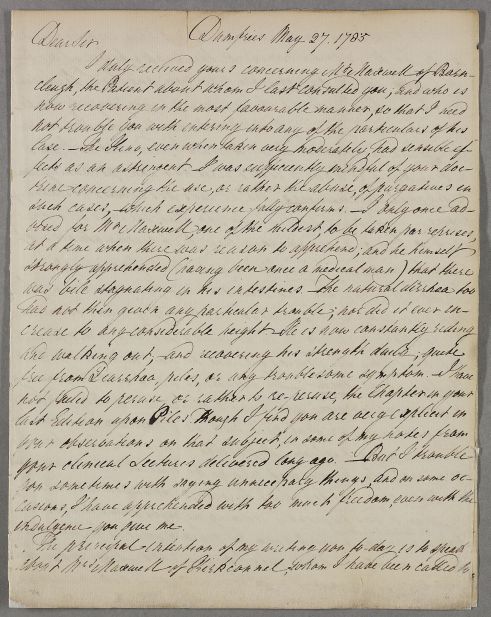 Dear Sir Dumfries May 27. 1785
I duly received yours concerning Mr Maxwell of Barn-
cleugh, the Patient about whom I last consulted you; and who is
now recovering in the most favourable manner, so that I need
not trouble you with entering into any of the particulars of his
Case. – The even when taken very moderately, had sensible ef-
fects as an astringent I was sufficiently mindful of your doc-
trine concerning the use, or rather the abuse, of purgatives in
such cases, which experience fully confirms. – I only once ad-
vised for Mr Maxwell, one of the mildest, to be taken par reprises,
at a time when there was reason to apprehend, and he himself
strongly apprehended (having been once a medical man) that there
was bile stagnating in his intestines. – The natural diarrhea too
has not then given any particular trouble; nor did it ever in-
crease to any considerable height He is now constantly riding
and walking out, and recovering his strength daily; quite
free from Diarrhea piles, or any troublesome symptom. – I have
not failed to peruse, or rather to re-peruse, the Chapter in your
last Edition upon Piles though I find you are very explicit in
your observations on that subject, in some of my notes from
your clinical Lectures delivered long ago. – But I trouble
you sometimes with saying unnecessary things, and on some oc-
casions, I have apprehended with too much freedom, even with the
indulgence you give me.
The principal intention of my writing you to-day is to speak
about Mrs Maxwell of Kirkconnel, whom I have been called to